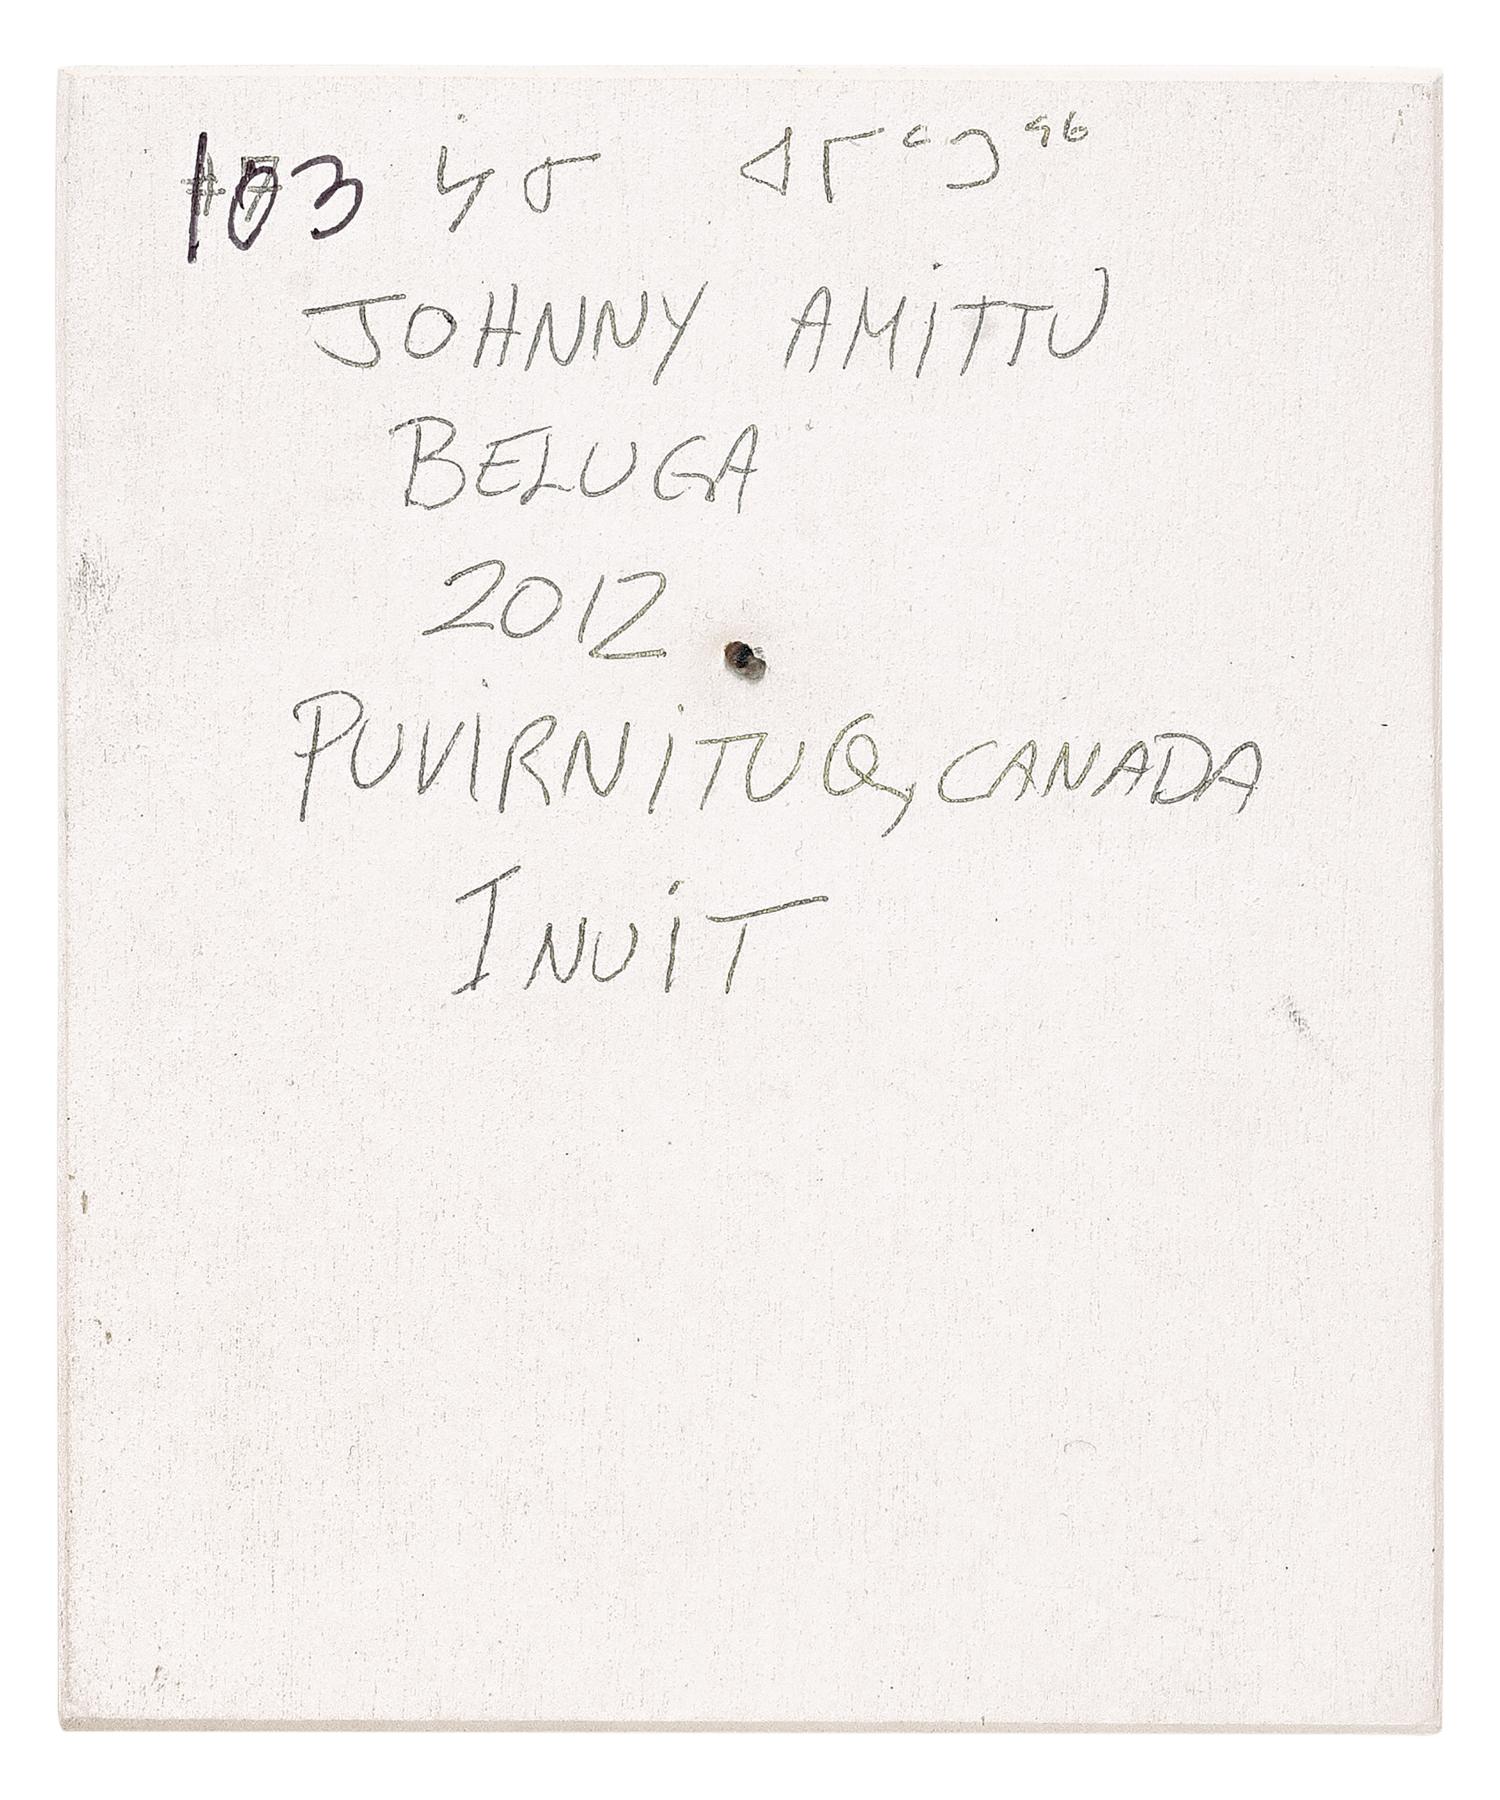 103 ᔮᓂ ᐊᒥᑦᑐᖅ
JOHNNY AMiTTU
BELUGA
2012
PUVIRNiTUQ, CANADA
INUiT